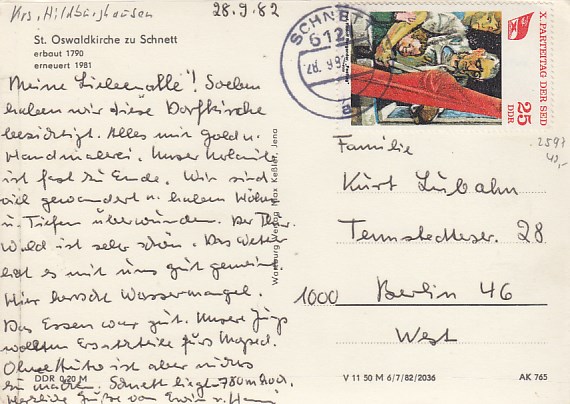 Krs. Hildburghausen
28.9.82
St. Oswaldkirche zu Schnett
erbaut 1790
erneuert 1981
Meine Lieben alle! Soeben
haben wir diese Dorfkirche
besichtigt. Alles mit Gold u.
Handmalerei. Unser Urlaub
ist fast zu Ende. Wir sind
viel gewandert u. haben Höhen
u. Tiefen überwunden. Der Thür.
Wald ist sehr schön. Das Wetter
hat es mit uns gut gemeint.
Hier herrscht Wassermangel.
Das Essen war gut. Unsere Jungs
wollten Ersatzteile fürs Moped.
Ohne Auto ist aber nichts
zu machen. Schnett liegt 780m hoch.
Herzliche Grüße von Erwin u. Hanni
DDR 0,20 M
Wartburg Verlag Max Keßler, Jena
SCHNETT
612
28.9.82
X. PARTEITAG DER SED
25
DDR
2597
40,-
Familie
Kurt Lubahn
Tennstedter Str. 28
1000 Berlin 46
West
V 11 50 M 6/7/82/2036
AK 765